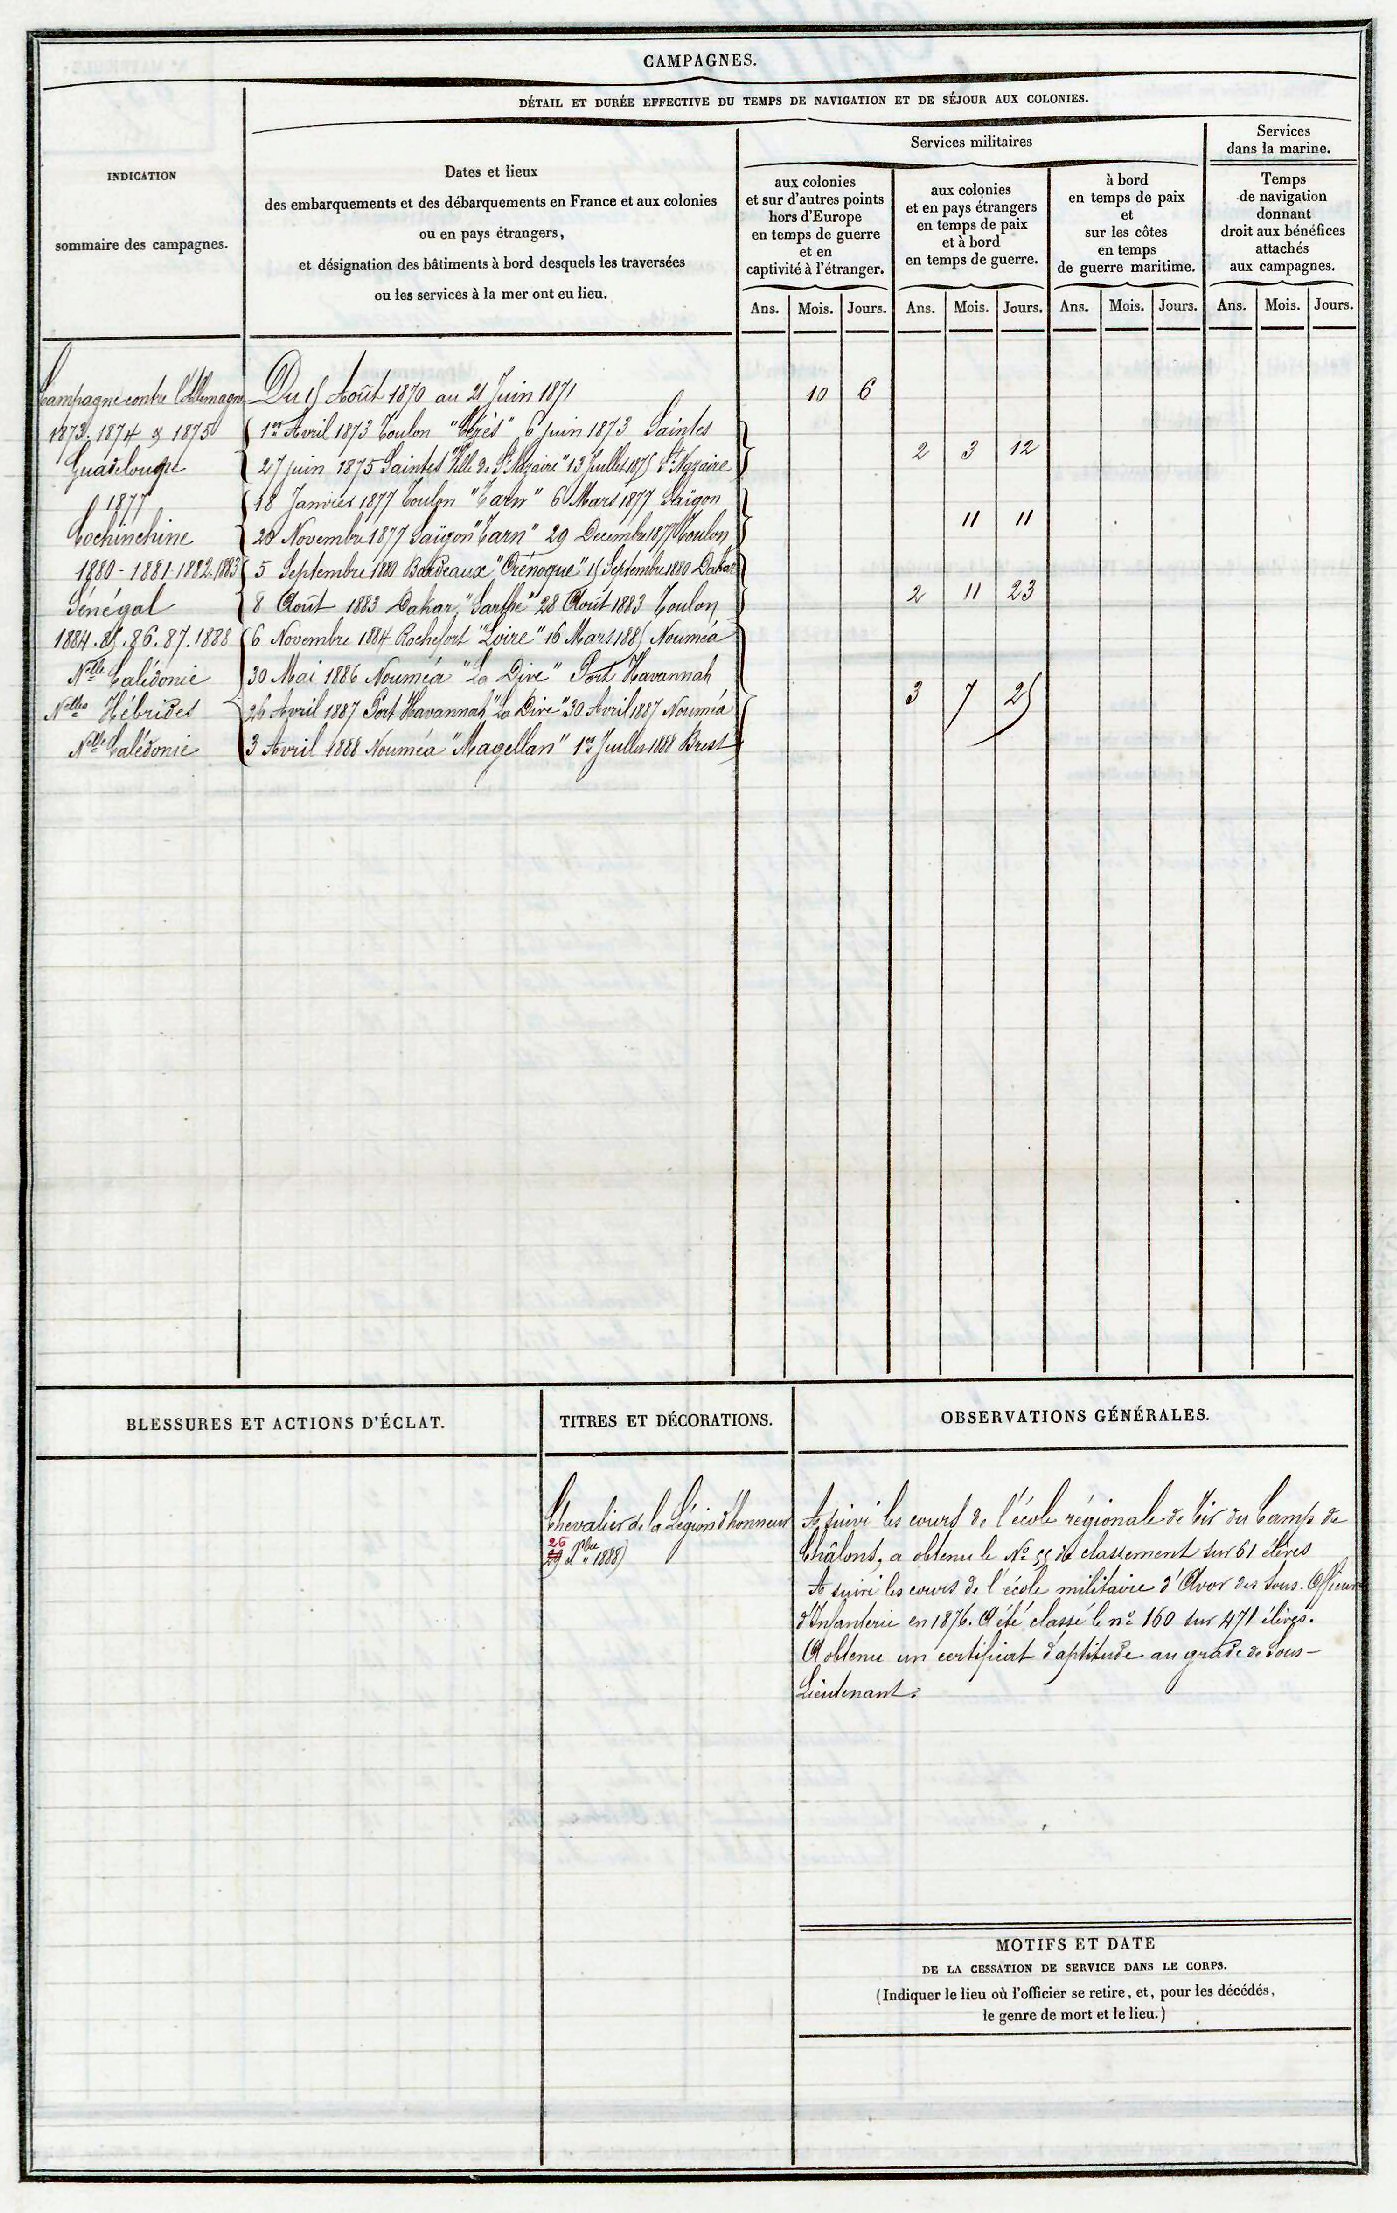 CAMPAGNES.
DÉTAIL ET DURÉE EFFECTIVE DU TEMPS DE NAVIGATION ET DE SÉJOUR AUX COLONIES.
INDICATION
sommaire des campagnes.
Dates et lieux
des embarquements et des débarquements en France et aux colonies
ou en pays étrangers,
et désignation des bâtiments à bord desquels les traversées
ou les services à la mer ont eu lieu.
Services militaires
aux colonies
et sur d'autres points
hors d'Europe
en temps de guerre
et en
captivité à l'étranger.
aux colonies
et en pays étrangers
en temps de paix
et à bord
en temps de guerre.
à bord
en temps de paix
et
sur les côtes
en temps
de guerre maritime.
Services
dans la marine.
Temps
de navigation
donnant
droit aux bénéfices
attachés
aux campagnes.
Ans. Mois. Jours. Ans. Mois. Jours. Ans. Mois. Jours. Ans. Mois. Jours.
Campagne contre l'Allemagne Du 15 Août 1870 au 21 Juin 1871 10 6
1873. 1874 & 1875 1er Avril 1873 Toulon "Cérès" 6 Juin 1873 Saintes
Guadeloupe 27 juin 1875 Saintes "Ville de St Nazaire" 13 Juillet 1875 St Nazaire 2 3 12
1877 18 Janvier 1877 Toulon "Tarn" 6 Mars 1877 Saïgon
Cochinchine 20 Novembre 1877 Saïgon "Tarn" 29 Décembre 1877 Toulon 11 11
1880-1881-1882-1883 5 Septembre 1880 Bordeaux "Orénoque" 15 Septembre 1880 Dakar
Sénégal 8 Août 1883 Dakar "Sarthe" 28 Août 1883 Toulon 2 11 23
1884.85.86.87.1888 6 Novembre 1884 Rochefort "Loire" 16 Mars 1885 Nouméa
Nelle Calédonie 30 Mai 1886 Nouméa "La Dive" Port Havannah
Nelles Hébrides 26 Avril 1887 Port Havannah "La Dive" 30 Avril 1887 Nouméa 3 7 25
Nelle Calédonie 3 Avril 1888 Nouméa "Magellan" 1er Juillet 1888 Brest
BLESSURES ET ACTIONS D'ÉCLAT.
TITRES ET DÉCORATIONS.
OBSERVATIONS GÉNÉRALES.
Chevalier de la Légion d'honneur
26
29 Xbre 1888)
A suivi les cours de l'école régionale de Tir du Camp de
Châlons, a obtenu le No 55 de classement sur 61 élèves
A suivi les cours de l'école militaire d'Avor des Sous-Officiers
d'Infanterie en 1876. A été classé le no 160 sur 471 élèves.
A obtenu un certificat d'aptitude au grade de Sous-
Lieutenant.
MOTIFS ET DATE
DE LA CESSATION DE SERVICE DANS LE CORPS.
(Indiquer le lieu où l'officier se retire, et, pour les décédés,
le genre de mort et le lieu.)